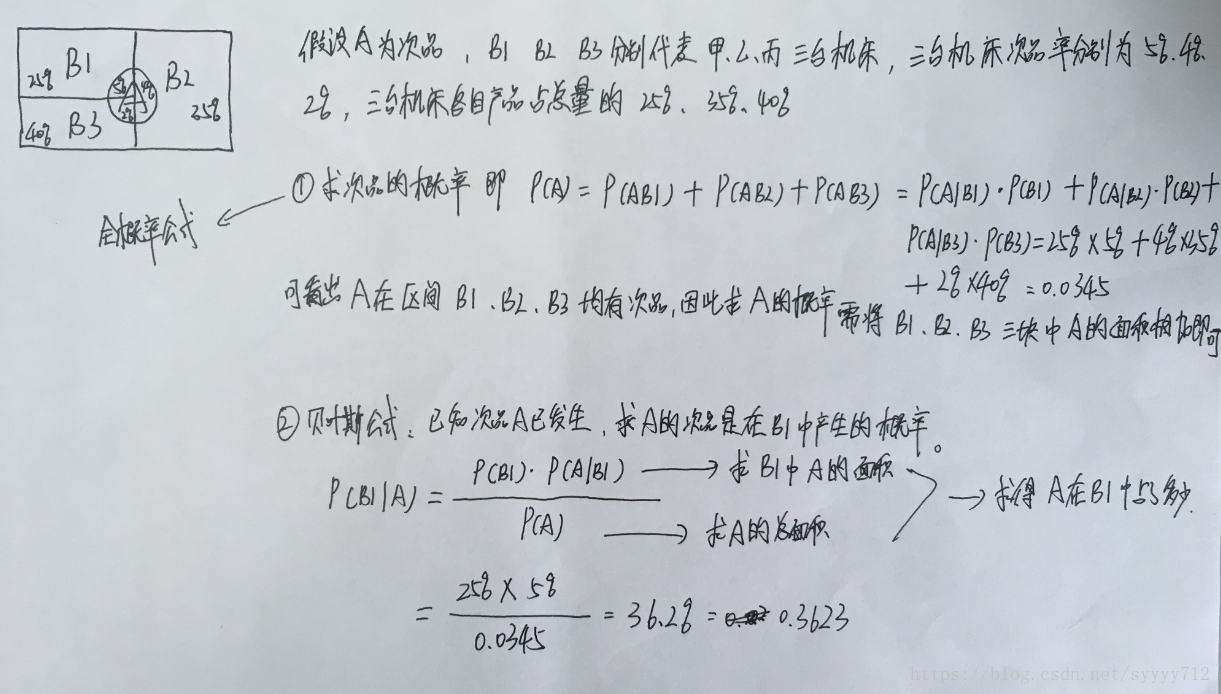 B1
B2
25%
5% 4%
2%
40% B3
35%
假设A为次品，B1 B2 B3分别代表 甲.乙.丙 三台机床，三台机床次品率分别为5%.4%.
2%，三台机床各自产品占总量的 25%、35%.40%
①求次品的概率 即 P(A) = P(AB1) + P(AB2) + P(AB3) = P(A|B1)·P(B1) + P(A|B2)·P(B2) +
全概率公式
P(A|B3)·P(B3) = 25% × 5% + 4% × 35%
+ 2% × 40% = 0.0345
可看出 A 在 区间 B1、B2、B3 均有次品,因此求 A的概率 需将 B1、B2、B3 三块中A的面积相加即可
②贝叶斯公式：已知次品A已发生，求A的次品是在B1中产生的概率。
P(B1)·P(A|B1) → 求B1中A的面积
P(B1|A) = → 求得 A在B1中占多少.
P(A) → 求A的总面积
25% × 5%
= = 36.2% = 0.3623
0.0345
https://blog.csdn.net/syyyy712